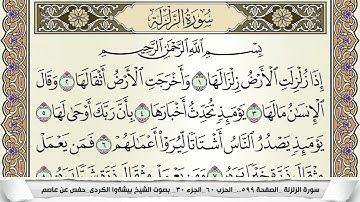 سُورَةُ الزَّلْزَلَةِ
بِسْمِ اللَّهِ الرَّحْمَٰنِ الرَّحِيمِ
إِذَا زُلْزِلَتِ الْأَرْضُ زِلْزَالَهَا ١ وَأَخْرَجَتِ الْأَرْضُ أَثْقَالَهَا ٢ وَقَالَ
الْإِنسَٰنُ مَا لَهَا ٣ يَوْمَئِذٍ تُحَدِّثُ أَخْبَارَهَا ٤ بِأَنَّ رَبَّكَ أَوْحَىٰ لَهَا ٥
يَوْمَئِذٍ يَصْدُرُ النَّاسُ أَشْتَاتًا لِّيُرَوْا۟ أَعْمَٰلَهُمْ ٦ فَمَن يَعْمَلْ
سورة الزلزلة _الصفحة ٥٩٩_ الحزب ٦٠_ الجزء ٣٠_ بصوت الشيخ بيشةوا الكردى حفص عن عاصم